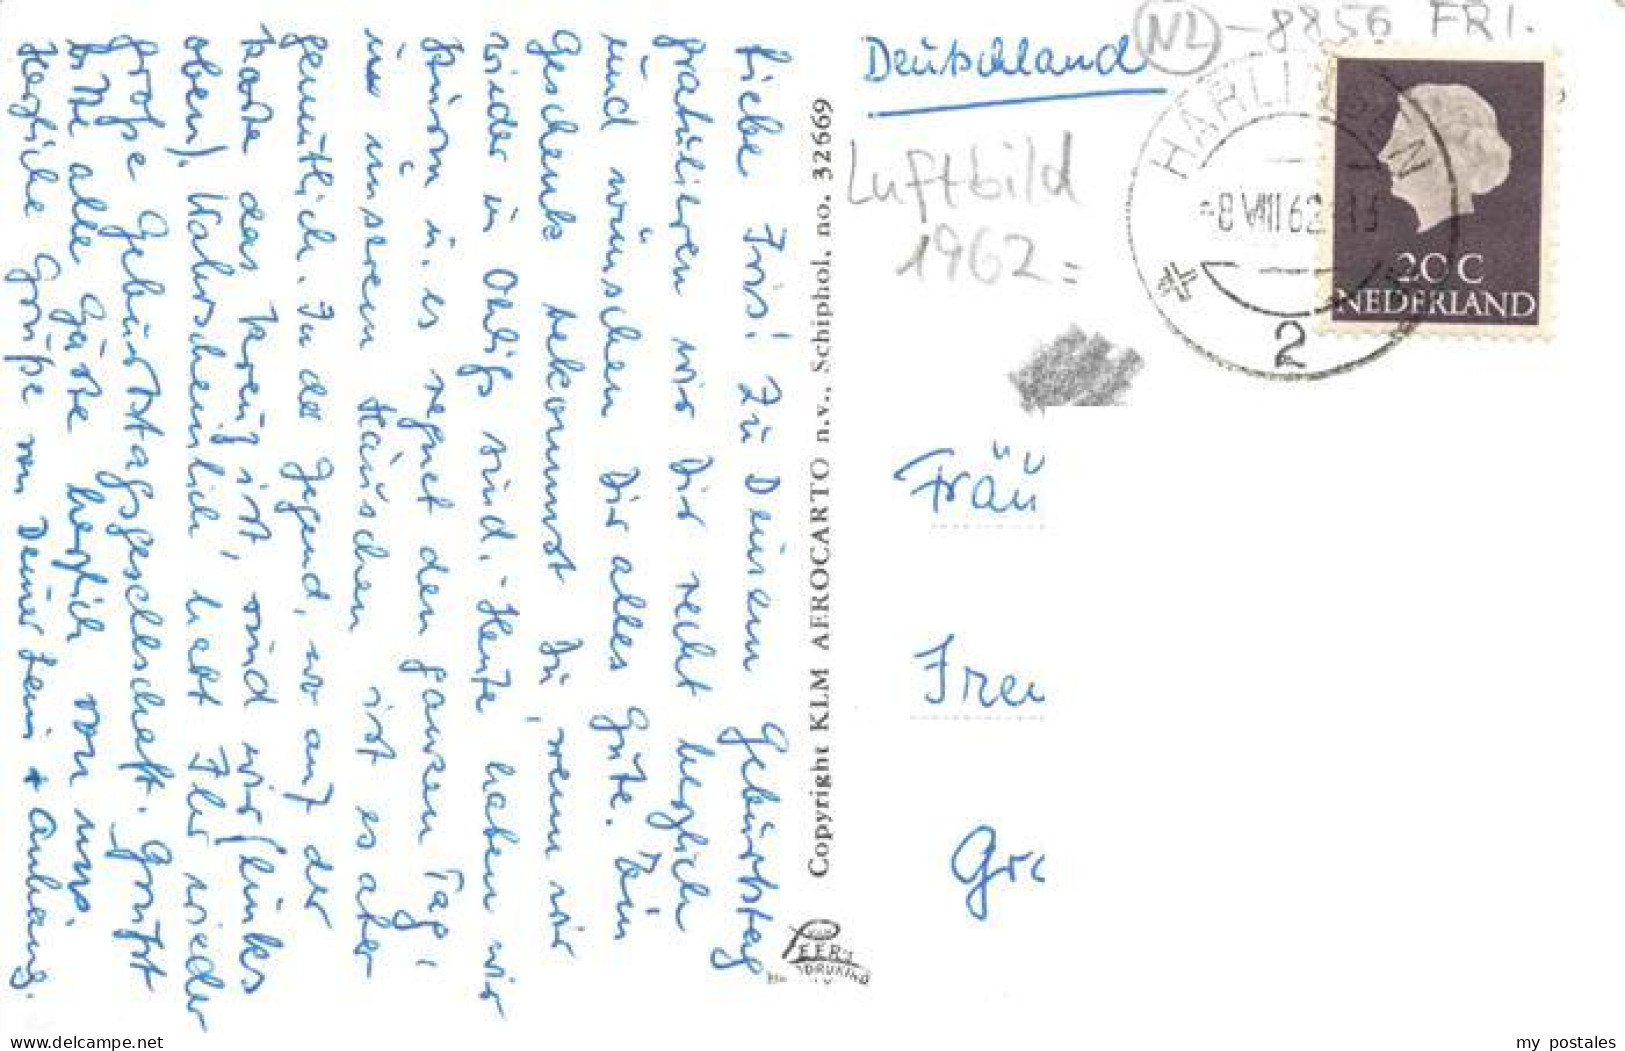 Liebe Iris! Zu Deinem Geburtstag
gratulieren wir Dir recht herzlich
und wünschen Dir alles Gute. Ein
Geschenk bekommst Du, wenn wir
wieder in Ohligs sind. - Heute haben wir
Sturm u. es regnet den ganzen Tag,
in unserem Häuschen ist es aber
gemütlich. In der Gegend, wo auf der
Karte das Kreuz ist, sind wir (links
oben). Wahrscheinlich habt Ihr wieder
große Geburtstagsgesellschaft. Grüßt
bitte alle Gäste herzlich von uns.
Herzliche Grüße von Deiner + Anhang.
Copyright KLM AEROCARTO n.v., Schiphol, no. 32669
VAN
PEER'S
DRUKING
NL - 8856 FRI.
Deutschland
Luftbild
1962 =
HARLINGEN
-8 VIII 62 -13
2
20 C
NEDERLAND
Fräu
Frei
Gr
my postales
https://www.delcampe.net